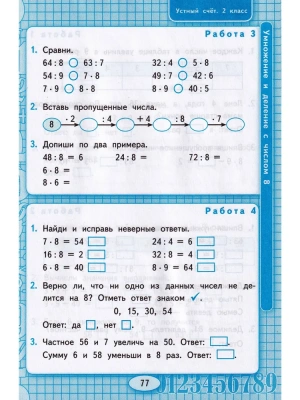 Устный счёт. 2 класс
Умножение и деление с числом 8
Работа 3
1. Сравни.
64 : 8 ○ 63 : 7 32 : 4 ○ 5 · 8
54 : 9 ○ 7 · 8 49 : 7 ○ 42 : 6
7 · 9 ○ 8 · 8 8 · 9 ○ 40 : 5
2. Вставь пропущенные числа.
8 · 2 : 4 + 4 : 8 · 7
3. Допиши по два примера.
48 : 8 = 6 24 : 8 = 72 : 8 =
6 · 8 =
8 · 6 =
Работа 4
1. Найди и исправь неверные ответы.
7 · 8 = 54 □ 24 : 4 = 6 □
16 : 8 = 2 □ 32 : 8 = 4 □
6 · 8 = 40 □ 8 · 9 = 64 □
2. Верно ли, что ни одно из данных чисел не де-
лится на 8? Отметь ответ знаком ✓.
0, 15, 30, 54
Ответ: да □, нет □.
3. Частное 56 и 7 увеличь на 50. Ответ: □.
Сумму 6 и 58 уменьши в 8 раз. Ответ: □.
77
0123456789